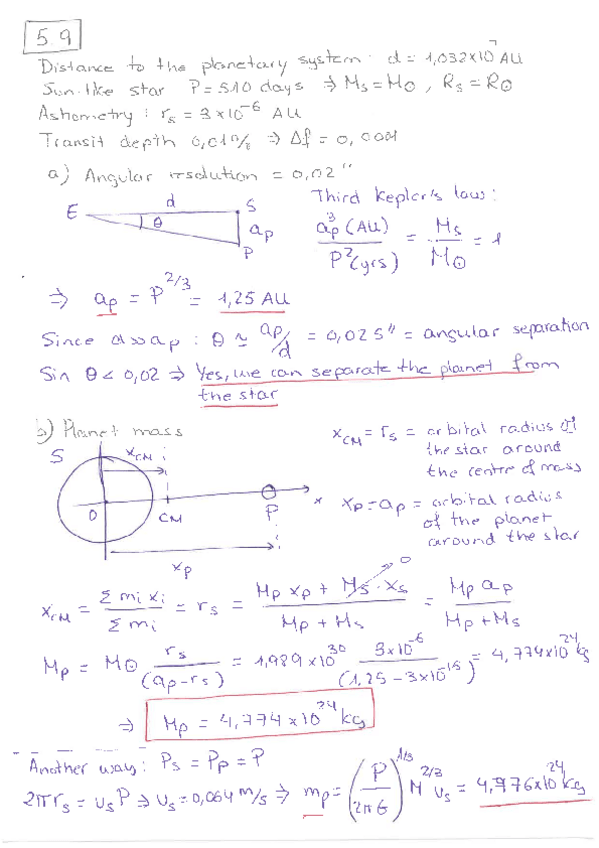 5.9
Distance to the planetary system: d = 1,032x10⁷ AU
Sun-like star P = 510 days ⇒ Ms = M⊙, Rs = R⊙
Astrometry: rs = 3x10⁻⁶ AU
Transit depth 0,01% ⇒ Δf = 0,0001
a) Angular resolution = 0,02"
Third Kepler's law:
E d S
θ ap
P
ap³(AU) / P²(yrs) = Ms / M⊙ = 1
⇒ ap = P^2/3 = 1,25 AU
Since d>>ap : θ ≃ ap/d = 0,025" = angular separation
Sin θ < 0,02 ⇒ Yes, we can separate the planet from
the star
b) Planet mass
xCM = rs = orbital radius of
the star around
the centre of mass
S xCM
O CM P x
xp
xp = ap = orbital radius
of the planet
around the star
xCM = Σ mi xi / Σ mi = rs = (Mp xp + Ms · xs) / (Mp + Ms) = Mp ap / (Mp + Ms)
0
Mp = M⊙ rs / (ap - rs) = 1,989x10³⁰ 3x10⁻⁶ / (1,25 - 3x10⁻¹⁶) = 4,774x10²⁴ kg
⇒ Mp = 4,774x10²⁴ kg
Another way: Ps = Pp = P
2πrs = υs P ⇒ υs = 0,064 m/s ⇒ mp = (P / 2πG)^1/3 M^2/3 υs = 4,776x10²⁴ kg